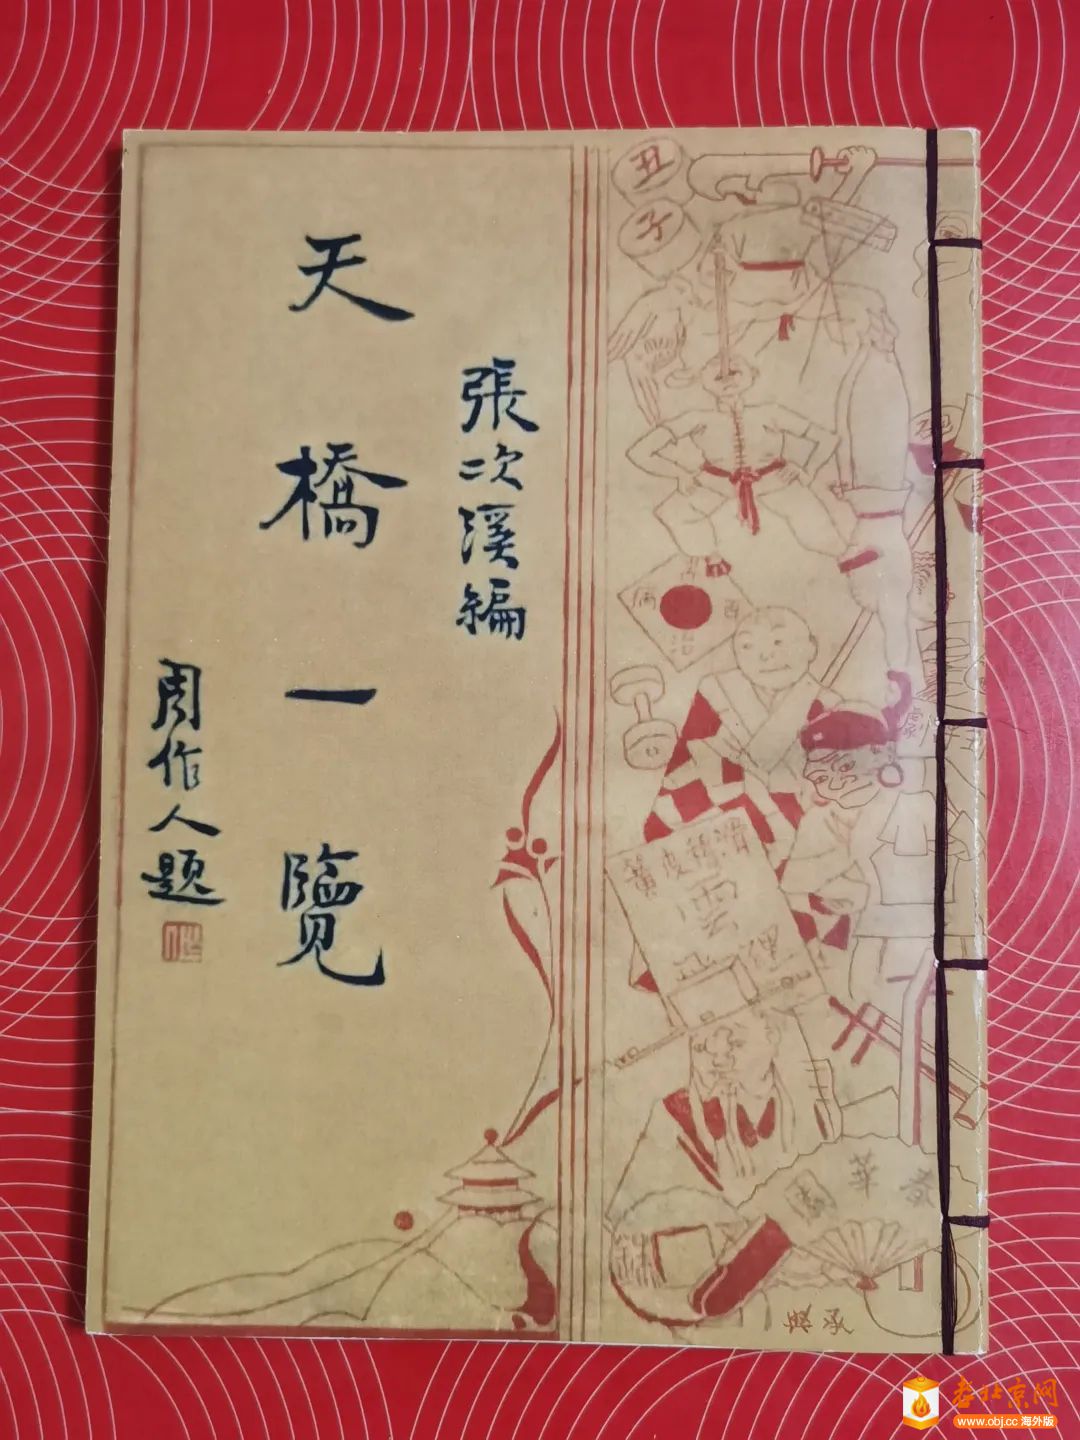 天橋一覽
張次溪編
周作人題
丑
子
雲
華春
老北京网
www.obj.cc 海外版